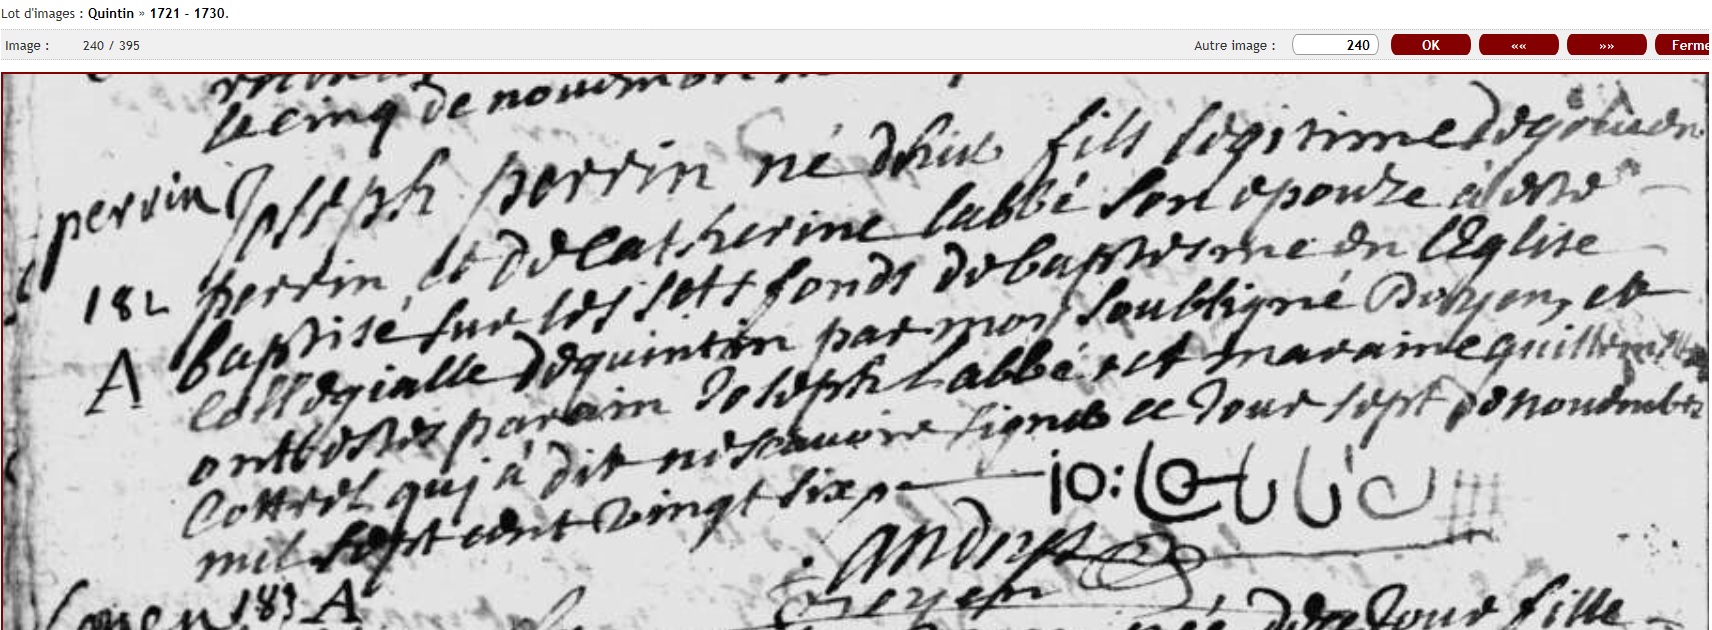 Lot d'images : Quintin » 1721 - 1730.
Image : 240 / 395
Autre image : 240 OK «« »» Ferme
le cinq de novembre
perrin Joseph perrin né d'hier fils legitime de
perrin, et de Catherine labbé son epouze a esté
182 baptisé sur les sts fonds de baptesme en l'Eglise
A Collegialle de quintin par moy soubsigné Doyen, et
ont estés parain Joseph Labbé et maraine
Cottrel quj a dit ne scavoire signer ce Jour sept de novembre
mil sept cent vingt six
io: Labbé
andrez
Doyen
183 A
né de ce Jour fille